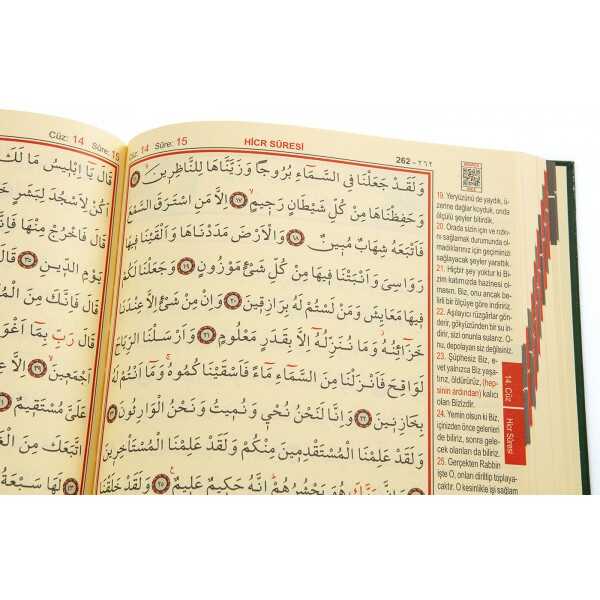 Cüz: 14 Sûre: 15
قَالَ يَٓا اِبْل۪يسُ مَا لَكَ
اَكُنْ لِاَسْجُدَ لِبَشَرٍ خَ
قَالَ فَاخْرُجْ مِنْهَا فَاِنَّ
يَوْمِ الدّ۪ينِ ﴿٣٥﴾ قَالَ
قَالَ فَاِنَّكَ مِنَ الْمُ
قَالَ رَبِّ بِمَٓا اَغْوَ
اَجْمَع۪ينَ ﴿٣٩﴾ اِلَّا
عَلَيَّ مُسْتَق۪يمٌ
اتَّبَعَكَ مِنَ الْ
لَهَا سَبْعَةُ
Cüz: 14 Sûre: 15
HİCR SÛRESİ
262 - ٢٦٢
وَلَقَدْ جَعَلْنَا فِي السَّمَٓاءِ بُرُوجًا وَزَيَّنَّاهَا لِلنَّاظِر۪ينَۙ ﴿١٦﴾
وَحَفِظْنَاهَا مِنْ كُلِّ شَيْطَانٍ رَج۪يمٍۙ ﴿١٧﴾ اِلَّا مَنِ اسْتَرَقَ السَّمْعَ
فَاَتْبَعَهُ شِهَابٌ مُب۪ينٌ ﴿١٨﴾ وَالْاَرْضَ مَدَدْنَاهَا وَاَلْقَيْنَا ف۪يهَا
رَوَاسِيَ وَاَنْبَتْنَا ف۪يهَا مِنْ كُلِّ شَيْءٍ مَوْزُونٍ ﴿١٩﴾ وَجَعَلْنَا لَكُمْ
ف۪يهَا مَعَايِشَ وَمَنْ لَسْتُمْ لَهُ بِرَازِق۪ينَ ﴿٢٠﴾ وَاِنْ مِنْ شَيْءٍ اِلَّا عِنْدَنَا
خَزَٓائِنُهُ وَمَا نُنَزِّلُهُٓ اِلَّا بِقَدَرٍ مَعْلُومٍ ﴿٢١﴾ وَاَرْسَلْنَا الرِّيَاحَ
لَوَاقِحَ فَاَنْزَلْنَا مِنَ السَّمَٓاءِ مَٓاءً فَاَسْقَيْنَاكُمُوهُۚ وَمَٓا اَنْتُمْ لَهُ
بِخَازِن۪ينَ ﴿٢٢﴾ وَاِنَّا لَنَحْنُ نُحْي۪ وَنُم۪يتُ وَنَحْنُ الْوَارِثُونَ ﴿٢٣﴾
وَلَقَدْ عَلِمْنَا الْمُسْتَقْدِم۪ينَ مِنْكُمْ وَلَقَدْ عَلِمْنَا الْمُسْتَأْخِر۪ينَ
﴿٢٤﴾ وَاِنَّ رَبَّكَ هُوَ يَحْشُرُهُمْۜ اِنَّهُ حَك۪يمٌ عَل۪يمٌ۟ ﴿٢٥﴾ وَلَقَدْ خَلَقْنَا
19. Yeryüzünü de yaydık, ü-
zerine dağlar koyduk, onda
ölçülü şeyler bitirdik.
20. Orada sizin için ve rızkı-
nı sağlamak durumunda ol-
madıklarınız için geçiminizi
sağlayacak şeyler yarattık.
21. Hiçbir şey yoktur ki Bi-
zim katımızda hazinesi ol-
masın. Biz, onu ancak be-
lirli bir ölçüye göre indiririz.
22. Aşılayıcı rüzgârlar gön-
derir, gökyüzünden bir su in-
dirir, sizi onunla sularız. O-
nu, depolayan siz değilsiniz.
23. Şüphesiz Biz, e-
vet yalnızca Biz yaşa-
tırız, öldürürüz, (hep-
sinin ardından) kalıcı
olan Bizizdir.
24. Yemin olsun ki Biz,
içinizden önce gelenleri
de biliriz, sonra gele-
cek olanları da biliriz.
25. Gerçekten Rabbin
işte O, onları diriltip toplaya-
caktır. O kesinlikle işi sağlam
14. Cüz
Hicr Sûresi